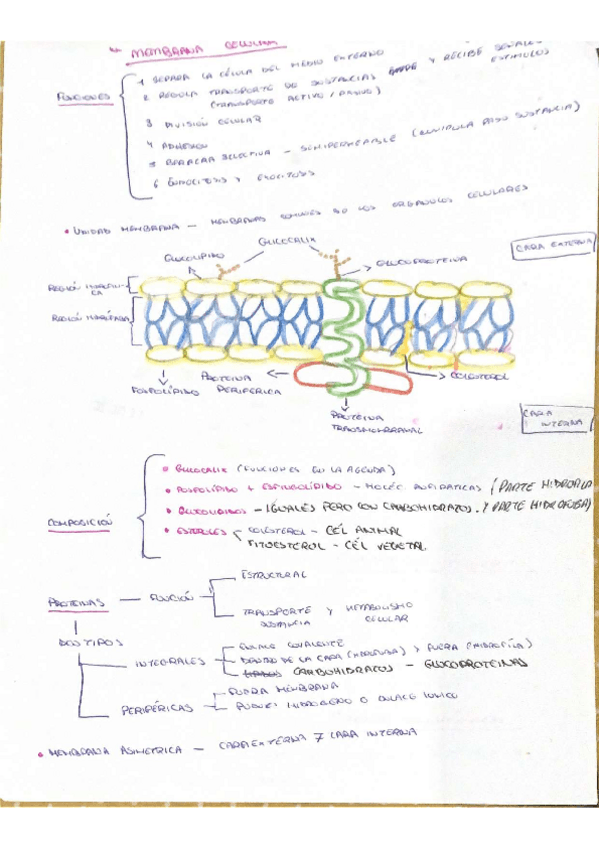 MEMBRANA CELULAR
FUNCIONES
1 SEPARA LA CÉLULA DEL MEDIO EXTERNO
2 REGULA TRANSPORTE DE SUSTANCIAS Y RECIBE SEÑALES
(TRANSPORTE ACTIVO / PASIVO) ESTÍMULOS
3 DIVISIÓN CELULAR
4 ADHESIÓN
5 BARRERA SELECTIVA - SEMIPERMEABLE (PASO SUSTANCIA)
6 ENDOCITOSIS Y EXOCITOSIS
• UNIDAD MEMBRANA - MEMBRANAS COMUNES DE LOS ORGANULOS CELULARES
GLICOCALIX
CARA EXTERNA
GLUCOLIPIDO
GLUCOPROTEINA
REGIÓN HIDROFILI-
CA
REGIÓN HIDRÓFOBA
PROTEINA
PERIFERICA
COLESTEROL
FOSFOLÍPIDO
PROTEINA
TRANSMEMBRANAL
CARA
INTERNA
COMPOSICIÓN
• GLICOCALIX (FUNCIONES EN LA AGENDA)
• FOSFOLÍPIDO + ESFINGOLÍPIDO - MOLÉC ANFIPATICAS (PARTE HIDROFILA
• GLUCOLIPIDOS - IGUALES PERO CON CARBOHIDRATOS. Y PARTE HIDROFOBA)
• ESTEROLES COLESTEROL - CÉL ANIMAL
FITOESTEROL - CÉL VEGETAL.
PROTEINAS - FUNCIÓN
ESTRUCTURAL
TRANSPORTE Y METABOLISMO
SUSTANCIA CELULAR
DOS TIPOS
INTEGRALES
ENLACE COVALENTE
DENTRO DE LA CAPA (HIDROFOBA) Y FUERA (HIDROFÍLA)
CARBOHIDRATOS - GLUCOPROTEINAS
PERIFÉRICAS
FUERA MEMBRANA
PUENTE HIDROGENO O ENLACE IONICO
• MEMBRANA ASIMETRICA - CARA EXTERNA ≠ CARA INTERNA